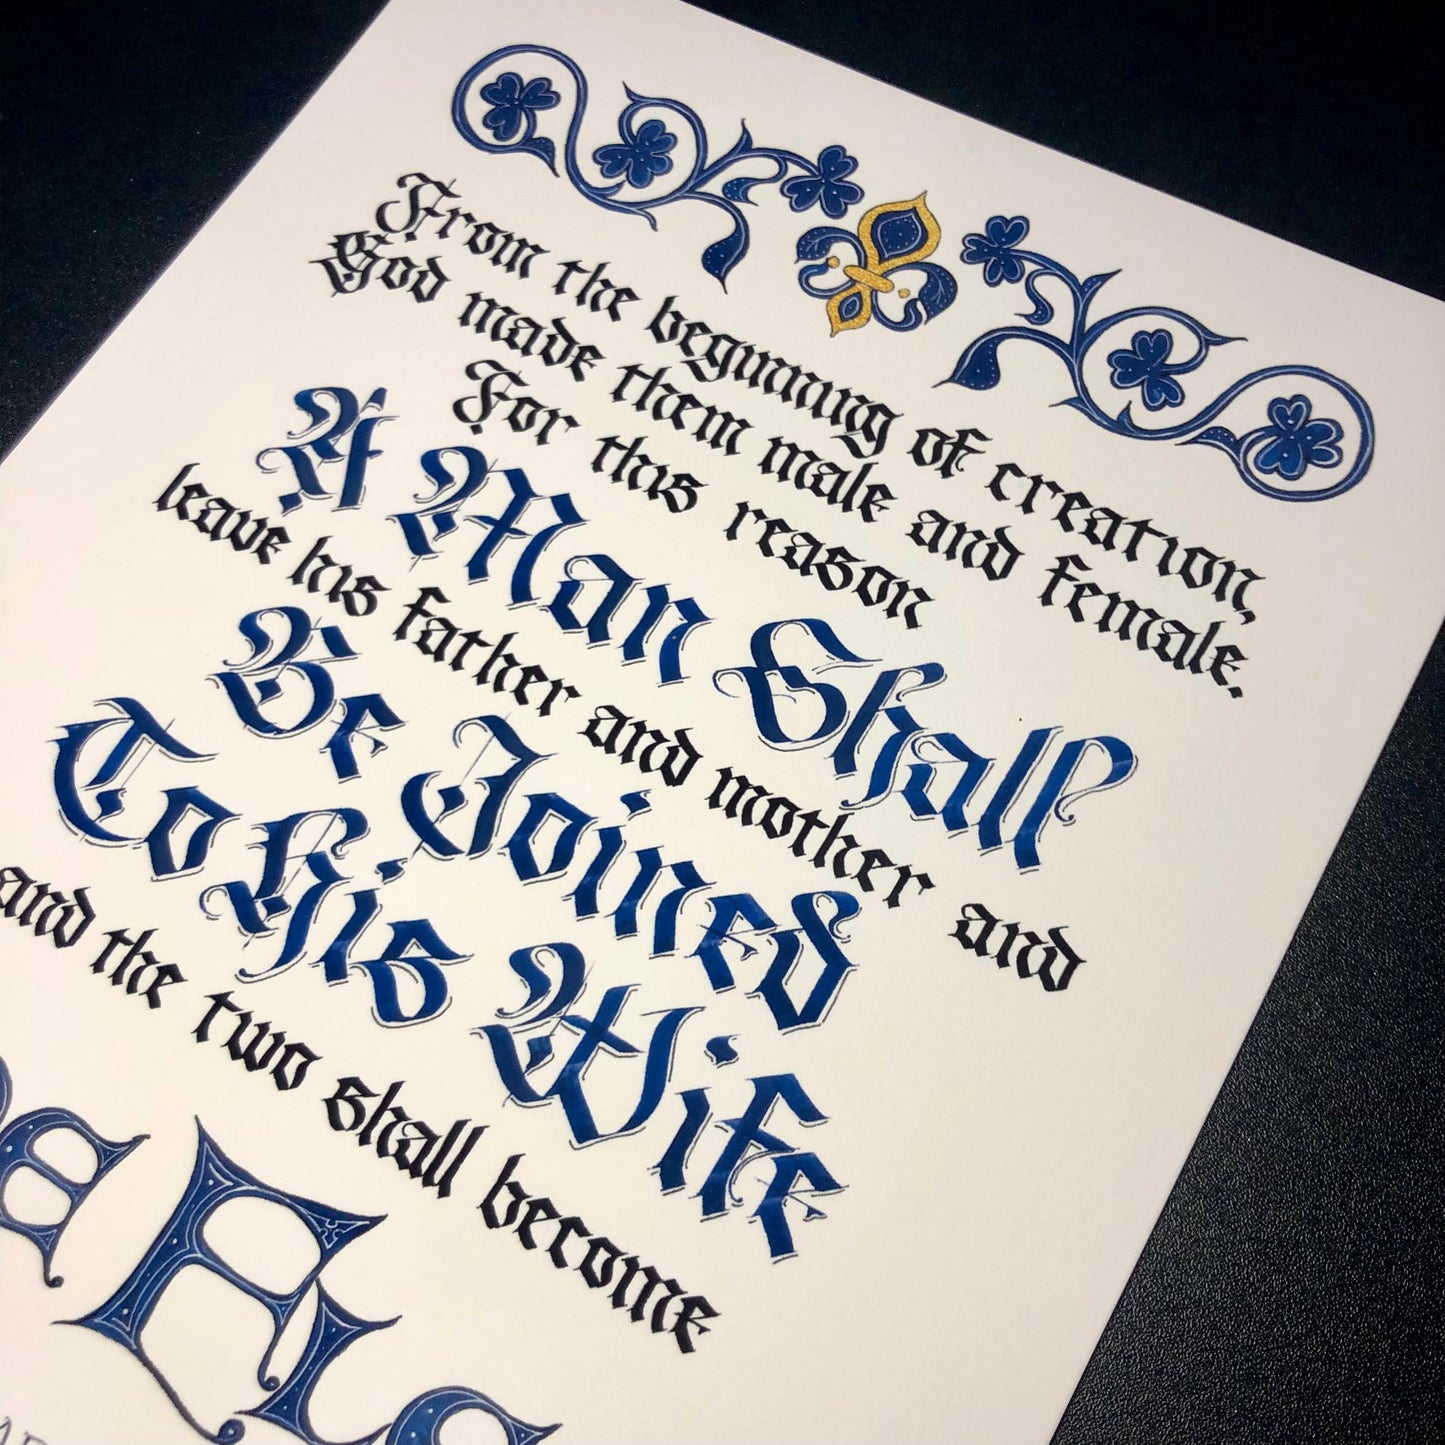 From the beginning of creation,
God made them male and female.
For this reason
A Man Shall
leave his father and mother and
Be Joined
To His Wife
and the two shall become